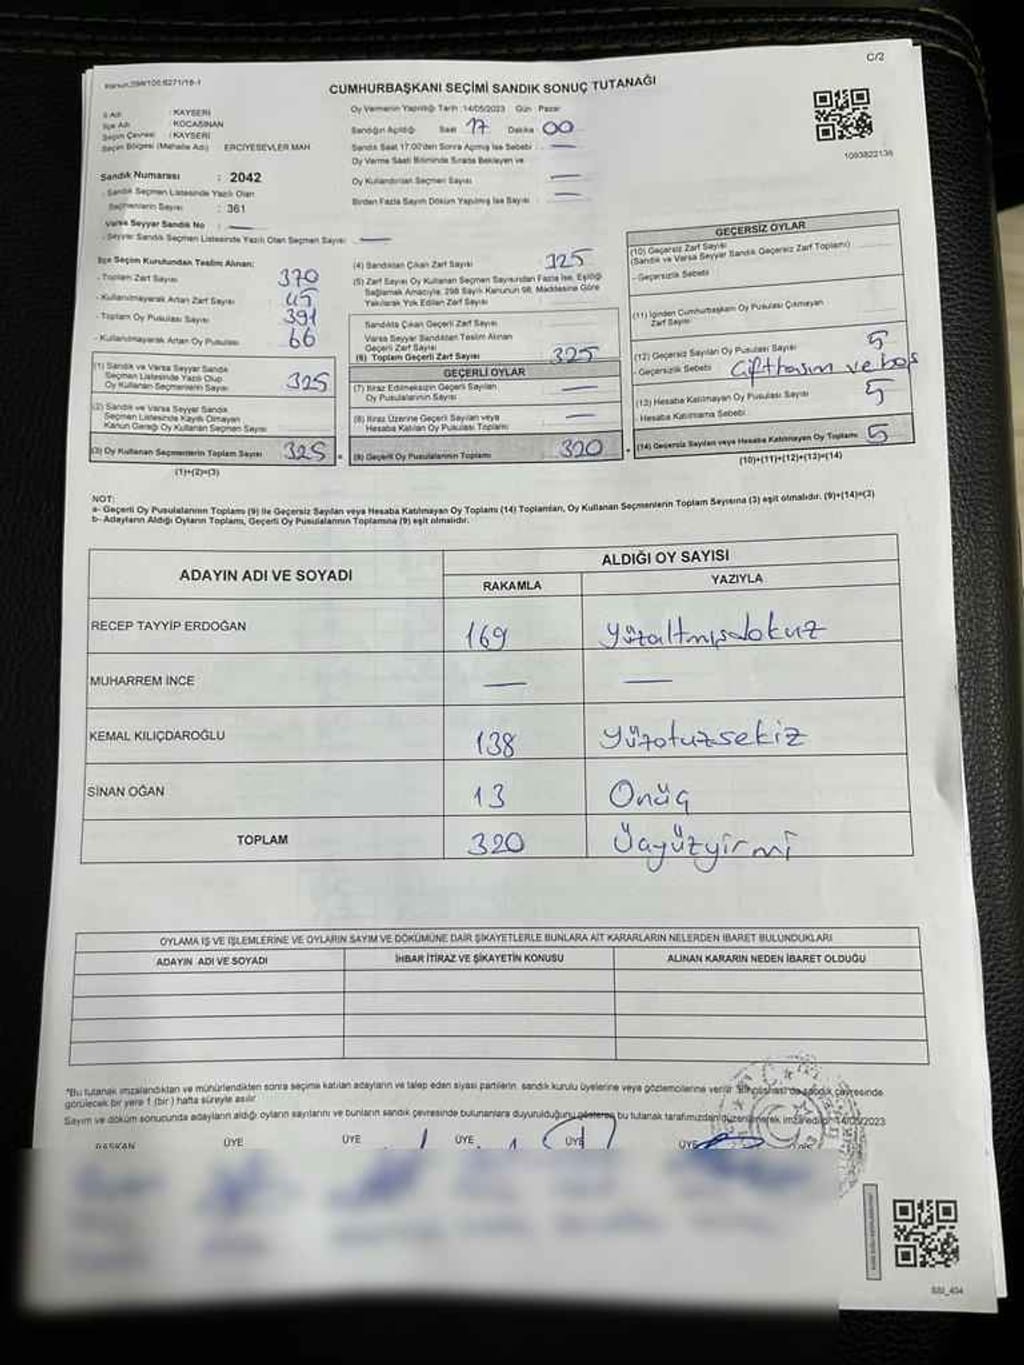 C/2
CUMHURBAŞKANI SEÇİMİ SANDIK SONUÇ TUTANAĞI
İl Adı : KAYSERİ
İlçe Adı : KOCASİNAN
Seçim Çevresi : KAYSERİ
Seçim Bölgesi (Mahalle Adı) ERCİYESEVLER MAH
Sandık Numarası : 2042
- Sandık Seçmen Listesinde Yazılı Olan
Seçmenlerin Sayısı : 361
Varsa Seyyar Sandık No : —
- Seyyar Sandık Seçmen Listesinde Yazılı Olan Seçmen Sayısı : —
Oy Vermenin Yapıldığı Tarih : 14/05/2023 Gün : Pazar
Sandığın Açıldığı Saat 17 Dakika : 00
Sandık Saat 17.00'den Sonra Açılmış İse Sebebi : —
Oy Verme Saati Bitiminde Sırada Bekleyen ve
Oy Kullandırılan Seçmen Sayısı —
Birden Fazla Sayım Döküm Yapılmış İse Sayısı : —
1093822136
İlçe Seçim Kurulundan Teslim Alınan:
- Toplam Zarf Sayısı 370
- Kullanılmayarak Artan Zarf Sayısı 45
- Toplam Oy Pusulası Sayısı 391
- Kullanılmayarak Artan Oy Pusulası 66
(1) Sandık ve Varsa Seyyar Sandık
Seçmen Listesinde Yazılı Olup
Oy Kullanan Seçmenlerin Sayısı 325
(2) Sandık ve Varsa Seyyar Sandık
Seçmen Listesinde Kayıtlı Olmayan
Kanun Gereği Oy Kullanan Seçmen Sayısı
(3) Oy Kullanan Seçmenlerin Toplam Sayısı 325
(1)+(2)=(3)
(4) Sandıktan Çıkan Zarf Sayısı 325
(5) Zarf Sayısı Oy Kullanan Seçmen Sayısından Fazla İse, Eşitliği
Sağlamak Amacıyla, 298 Sayılı Kanunun 98. Maddesine Göre
Yakılarak Yok Edilen Zarf Sayısı
Sandıkta Çıkan Geçerli Zarf Sayısı
Varsa Seyyar Sandıktan Teslim Alınan
Geçerli Zarf Sayısı
(6) Toplam Geçerli Zarf Sayısı 325
GEÇERLİ OYLAR
(7) İtiraz Edilmeksizin Geçerli Sayılan
Oy Pusulalarının Sayısı —
(8) İtiraz Üzerine Geçerli Sayılan veya
Hesaba Katılan Oy Pusulası Toplamı —
(9) Geçerli Oy Pusulalarının Toplamı 320
GEÇERSİZ OYLAR
(10) Geçersiz Zarf Sayısı
(Sandık ve Varsa Seyyar Sandık Geçersiz Zarf Toplamı)
- Geçersizlik Sebebi
(11) İçinden Cumhurbaşkanı Oy Pusulası Çıkmayan
Zarf Sayısı
(12) Geçersiz Sayılan Oy Pusulası Sayısı 5
- Geçersizlik Sebebi Çift basım ve boş
(13) Hesaba Katılmayan Oy Pusulası Sayısı 5
- Hesaba Katılmama Sebebi
(14) Geçersiz Sayılan veya Hesaba Katılmayan Oy Toplamı 5
(10)+(11)+(12)+(13)=(14)
NOT:
a- Geçerli Oy Pusulalarının Toplamı (9) ile Geçersiz Sayılan veya Hesaba Katılmayan Oy Toplamı (14) Toplamları, Oy Kullanan Seçmenlerin Toplam Sayısına (3) eşit olmalıdır. (9)+(14)=(3)
b- Adayların Aldığı Oyların Toplamı, Geçerli Oy Pusulalarının Toplamına (9) eşit olmalıdır.
ADAYIN ADI VE SOYADI ALDIĞI OY SAYISI
RAKAMLA YAZIYLA
RECEP TAYYİP ERDOĞAN 169 yüzaltmışdokuz
MUHARREM İNCE — —
KEMAL KILIÇDAROĞLU 138 yüzotuzsekiz
SİNAN OĞAN 13 Onüç
TOPLAM 320 Üçyüzyirmi
OYLAMA İŞ VE İŞLEMLERİNE VE OYLARIN SAYIM VE DÖKÜMÜNE DAİR ŞİKAYETLERLE BUNLARA AİT KARARLARIN NELERDEN İBARET BULUNDUKLARI
ADAYIN ADI VE SOYADI İHBAR İTİRAZ VE ŞİKAYETİN KONUSU ALINAN KARARIN NEDEN İBARET OLDUĞU
*Bu tutanak imzalandıktan ve mühürlendikten sonra seçime katılan adayların ve talep eden siyasi partilerin sandık kurulu üyelerine veya gözlemcilerine verilir. Bir nüshası da sandık çevresinde
görülecek bir yere 1 (bir) hafta süreyle asılır
Sayım ve döküm sonucunda adayların aldığı oyların sayılarını ve bunların sandık çevresinde bulunanlara duyurulduğunu gösteren bu tutanak tarafımızdan düzenlenerek imza edildi. 14/05/2023
BAŞKAN ÜYE ÜYE ÜYE ÜYE ÜYE